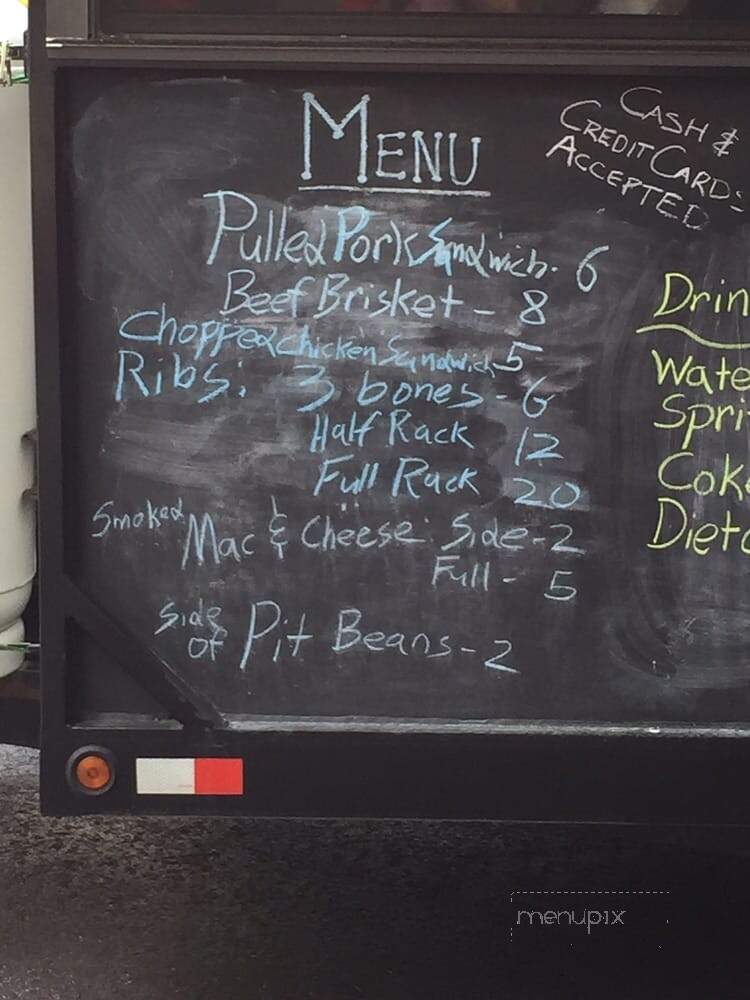 MENU
CASH &
CREDIT CARDS
ACCEPTED
Pulled Pork Sandwich - 6
Beef Brisket - 8
Chopped Chicken Sandwich 5
Ribs: 3 bones - 6
Half Rack 12
Full Rack 20
Smoked Mac & Cheese: Side - 2
Full - 5
Side of Pit Beans - 2
Drin
Wate
Spri
Coke
Diet
menupix